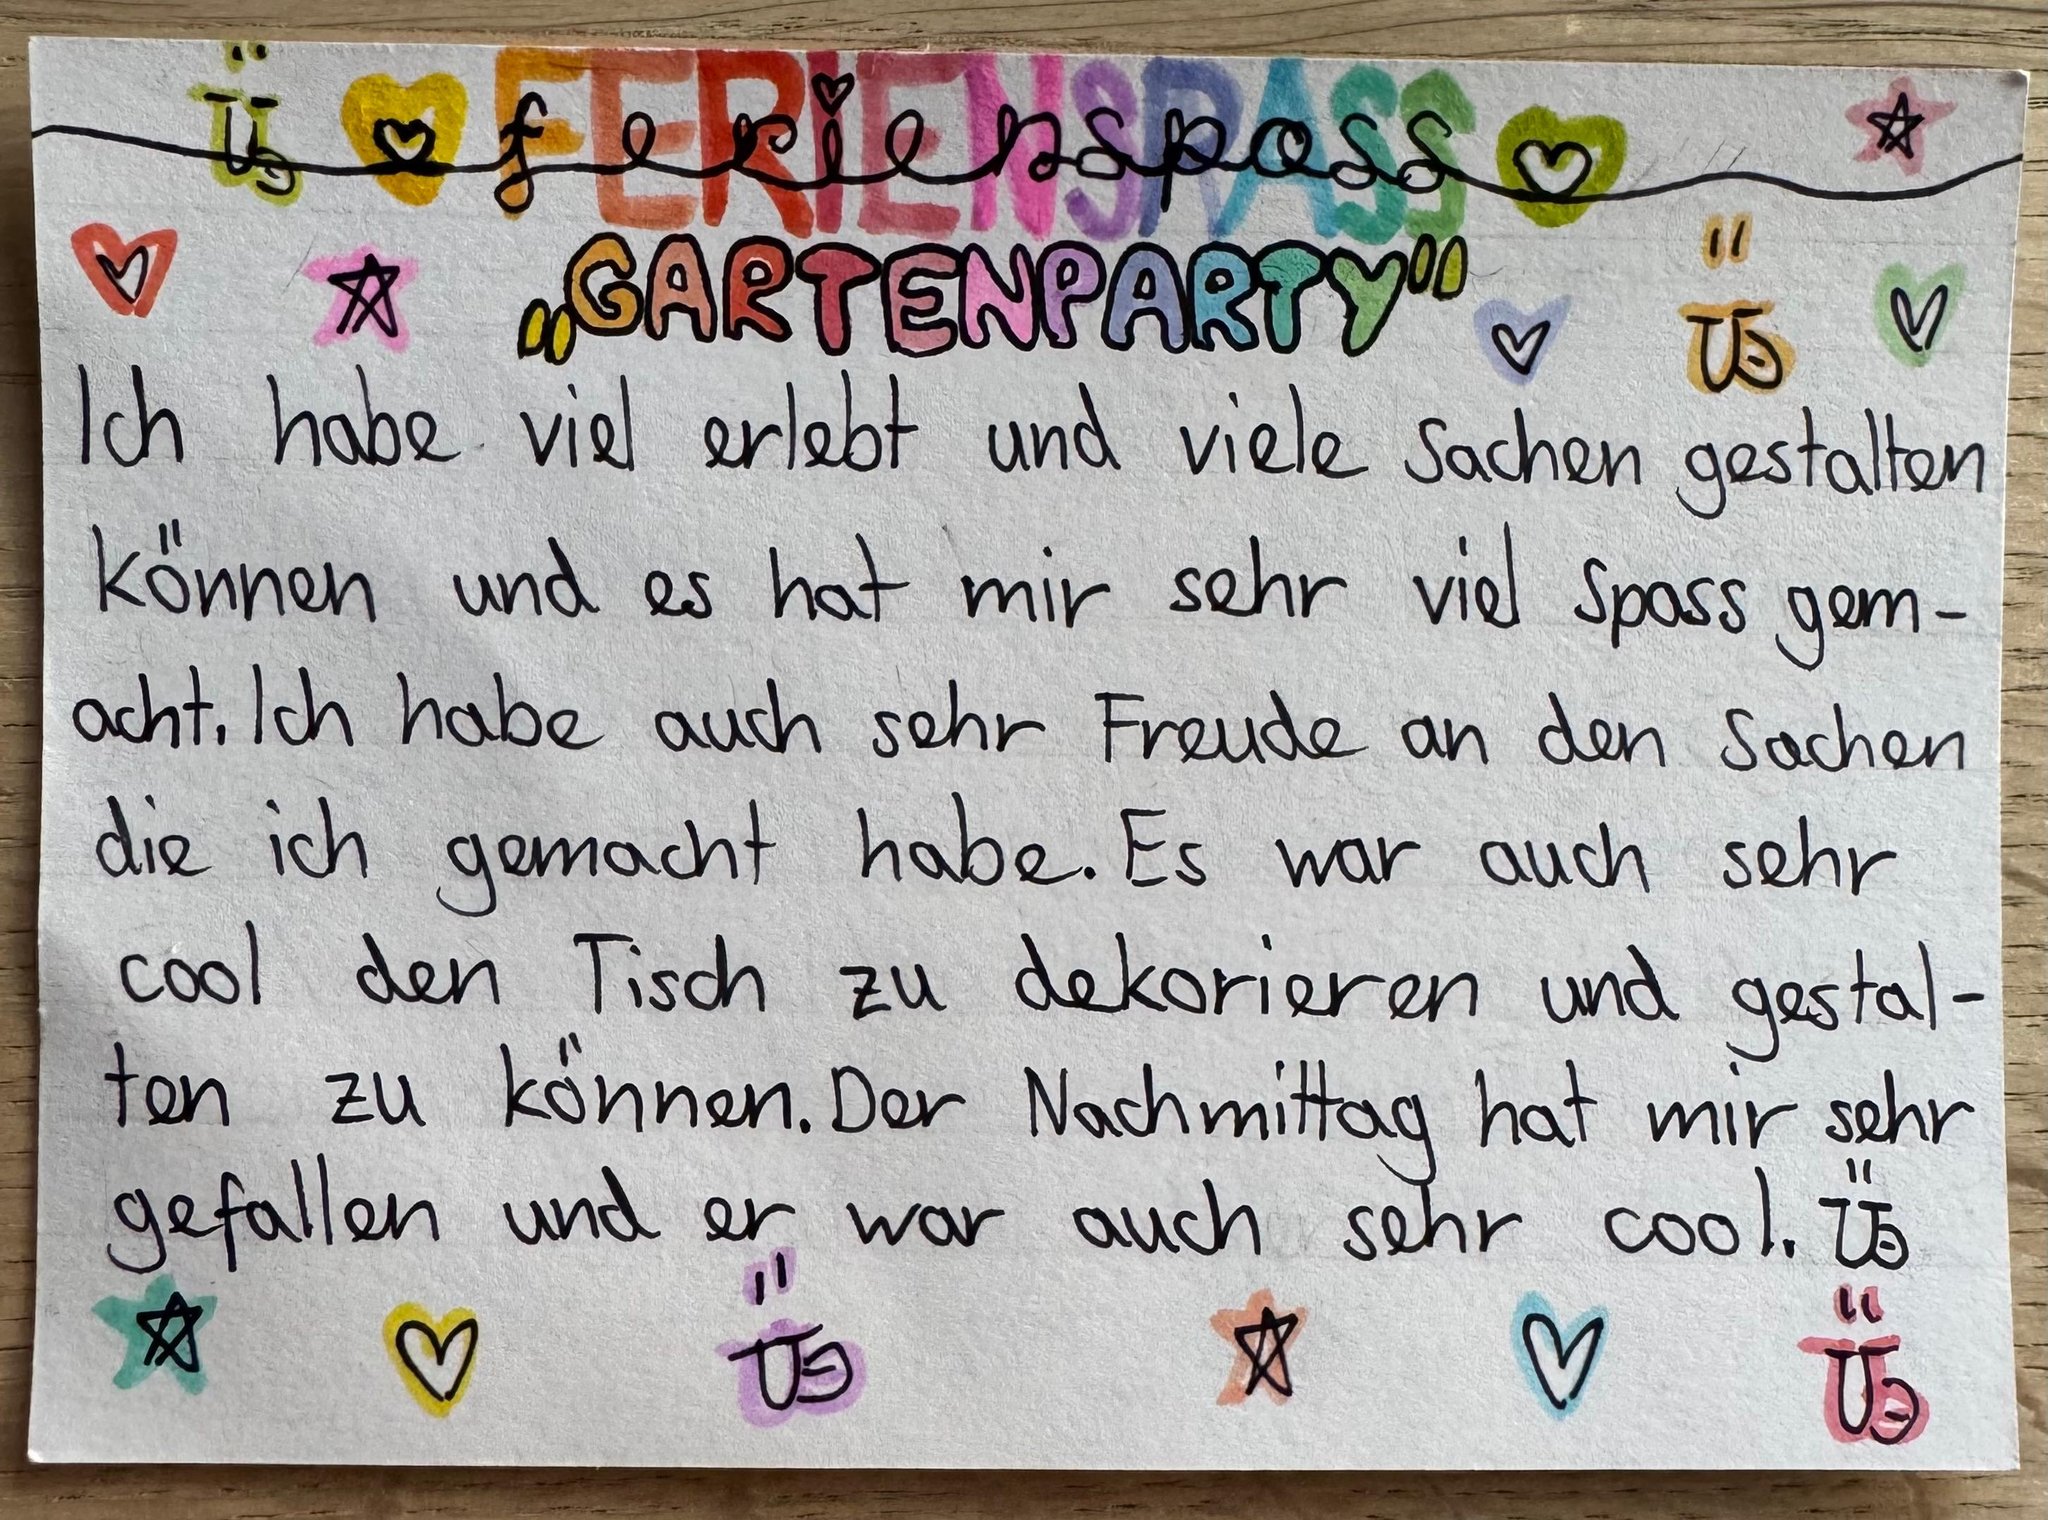 FERIENSPASS
ferienspass
„GARTENPARTY"
Ich habe viel erlebt und viele Sachen gestalten
können und es hat mir sehr viel Spass gem-
acht. Ich habe auch sehr Freude an den Sachen
die ich gemacht habe. Es war auch sehr
cool den Tisch zu dekorieren und gestal-
ten zu können. Der Nachmittag hat mir sehr
gefallen und er war auch sehr cool.